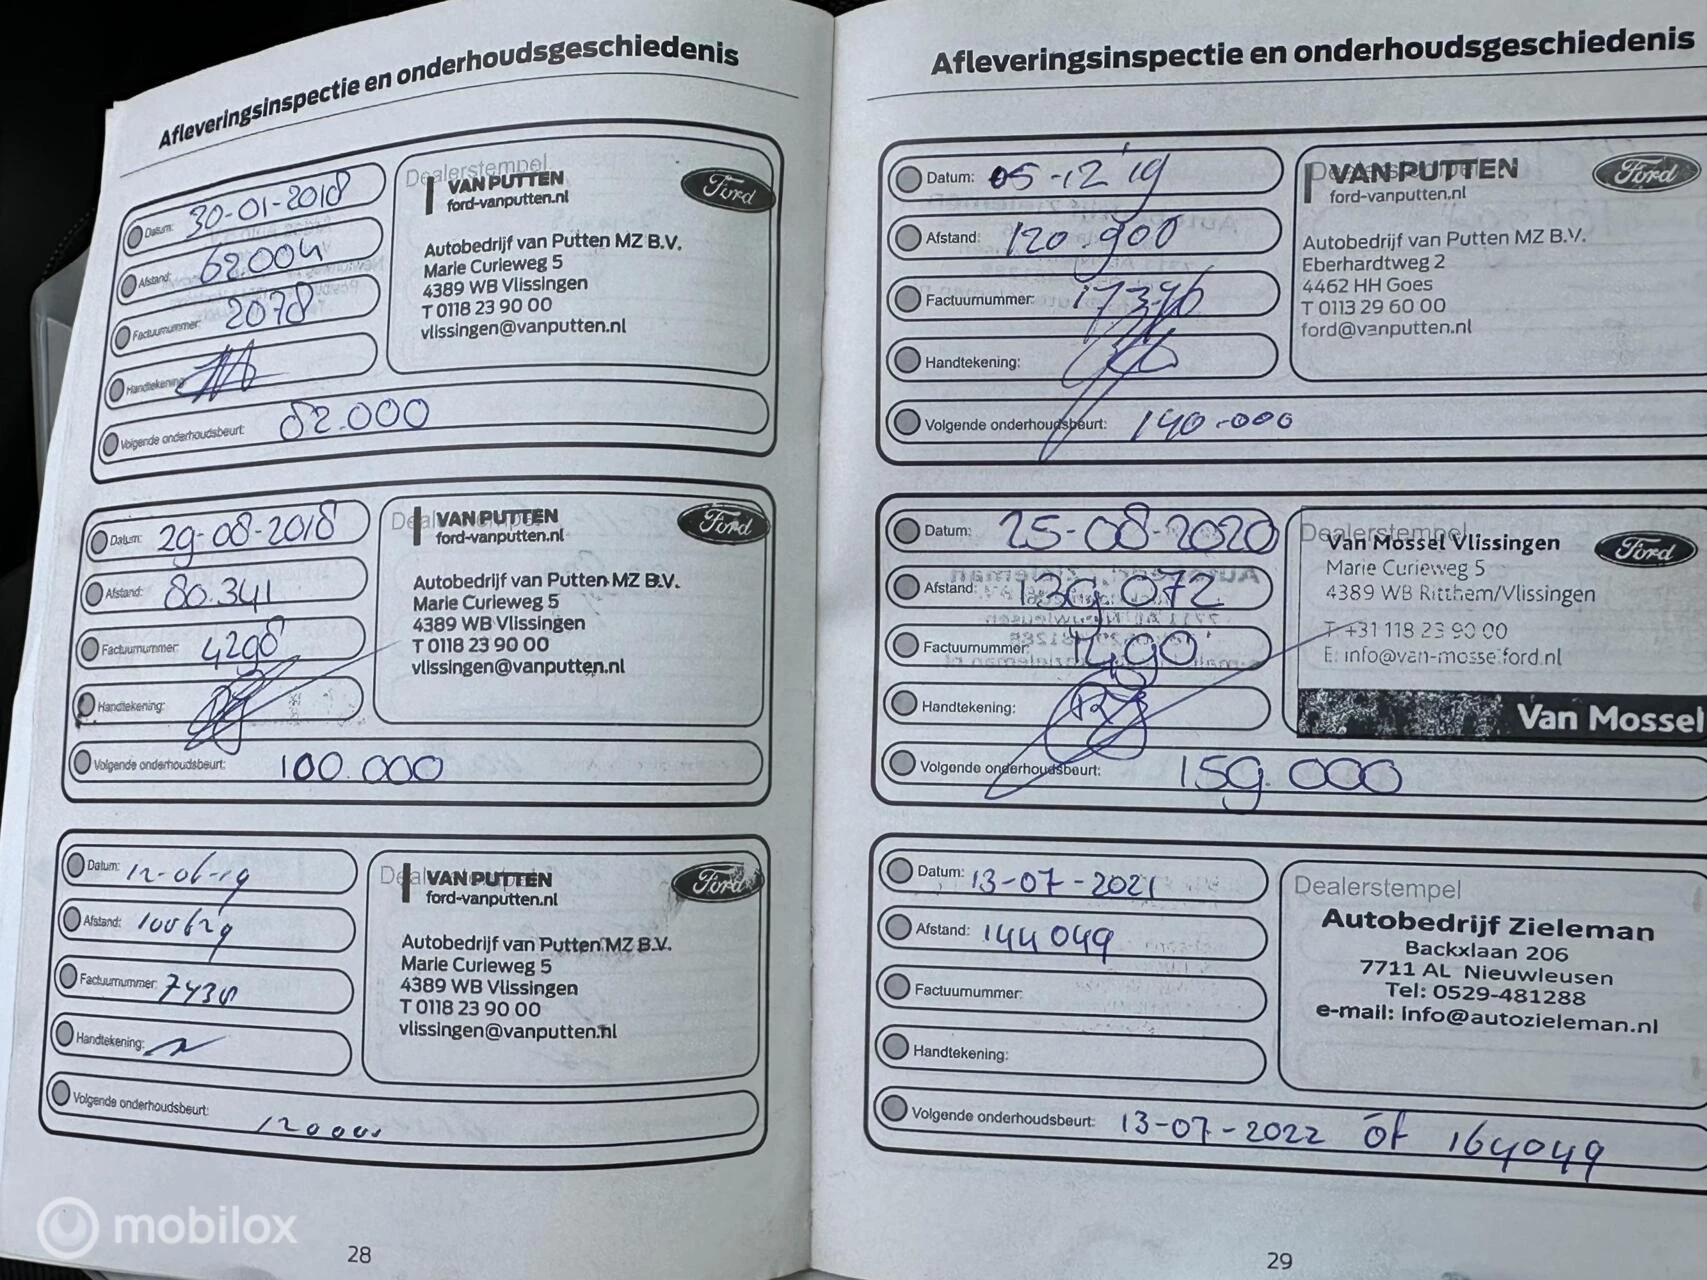 Afleveringsinspectie en onderhoudsgeschiedenis
Datum: 30-01-2018
Afstand: 62.004
Factuurnummer: 2078
Handtekening:
Volgende onderhoudsbeurt: 82.000
Dealerstempel
VAN PUTTEN
ford-vanputten.nl
Ford
Autobedrijf van Putten MZ B.V.
Marie Curieweg 5
4389 WB Vlissingen
T 0118 23 90 00
vlissingen@vanputten.nl
Datum: 29-08-2018
Afstand: 80.341
Factuurnummer: 4298
Handtekening:
Volgende onderhoudsbeurt: 100.000
VAN PUTTEN
ford-vanputten.nl
Ford
Autobedrijf van Putten MZ B.V.
Marie Curieweg 5
4389 WB Vlissingen
T 0118 23 90 00
vlissingen@vanputten.nl
Datum: 12-06-19
Afstand: 100629
Factuurnummer: 7438
Handtekening:
Volgende onderhoudsbeurt: 120000
VAN PUTTEN
ford-vanputten.nl
Ford
Autobedrijf van Putten MZ B.V.
Marie Curieweg 5
4389 WB Vlissingen
T 0118 23 90 00
vlissingen@vanputten.nl
28
Afleveringsinspectie en onderhoudsgeschiedenis
Datum: 05-12'19
Afstand: 120.900
Factuurnummer:
Handtekening:
Volgende onderhoudsbeurt: 140.000
VAN PUTTEN
ford-vanputten.nl
Ford
Autobedrijf van Putten MZ B.V.
Eberhardtweg 2
4462 HH Goes
T 0113 29 60 00
ford@vanputten.nl
Datum: 25-08-2020
Afstand: 139.072
Factuurnummer: 1490
Handtekening:
Volgende onderhoudsbeurt: 159.000
Dealerstempel
Van Mossel Vlissingen
Ford
Marie Curieweg 5
4389 WB Ritthem/Vlissingen
T +31 118 23 90 00
E: info@van-mossel-ford.nl
Van Mossel
Datum: 13-07-2021
Afstand: 144049
Factuurnummer:
Handtekening:
Volgende onderhoudsbeurt: 13-07-2022 óf 164049
Dealerstempel
Autobedrijf Zieleman
Backxlaan 206
7711 AL Nieuwleusen
Tel: 0529-481288
e-mail: info@autozieleman.nl
29
mobilox